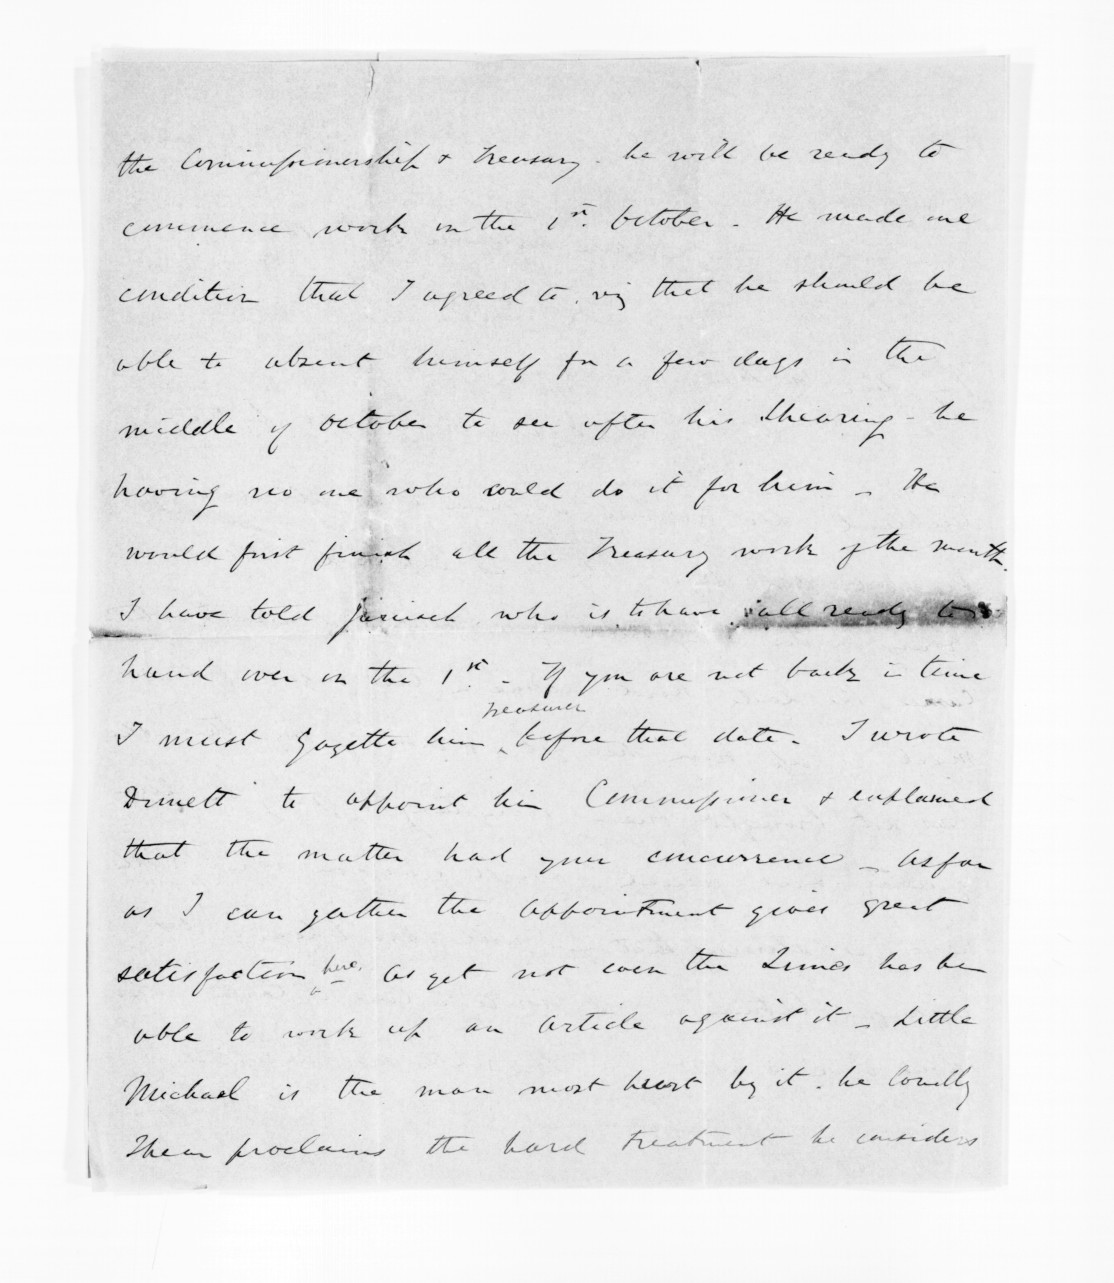 the Commissionership & Treasury - he will be ready to
commence work on the 1st. October - He made one
condition that I agreed to, viz that he should be
able to absent himself for a few days in the
middle of October to see after his Shearing - he
having no one who could do it for him - He
would first finish all the Treasury work of the month.
I have told who is to have all ready to
hand over on the 1st. - If you are not back in time
Treasurer
I must Gazette him before that date - I wrote
to appoint him Commissioner & explained
that the matter had your concurrence - As far
as I can gather the appointment gives great
satisfaction here, as yet not even the Times has been
able to work up an article against it - Little
Michael is the man most hurt by it - he loudly
I hear proclaims the hard treatment he considers